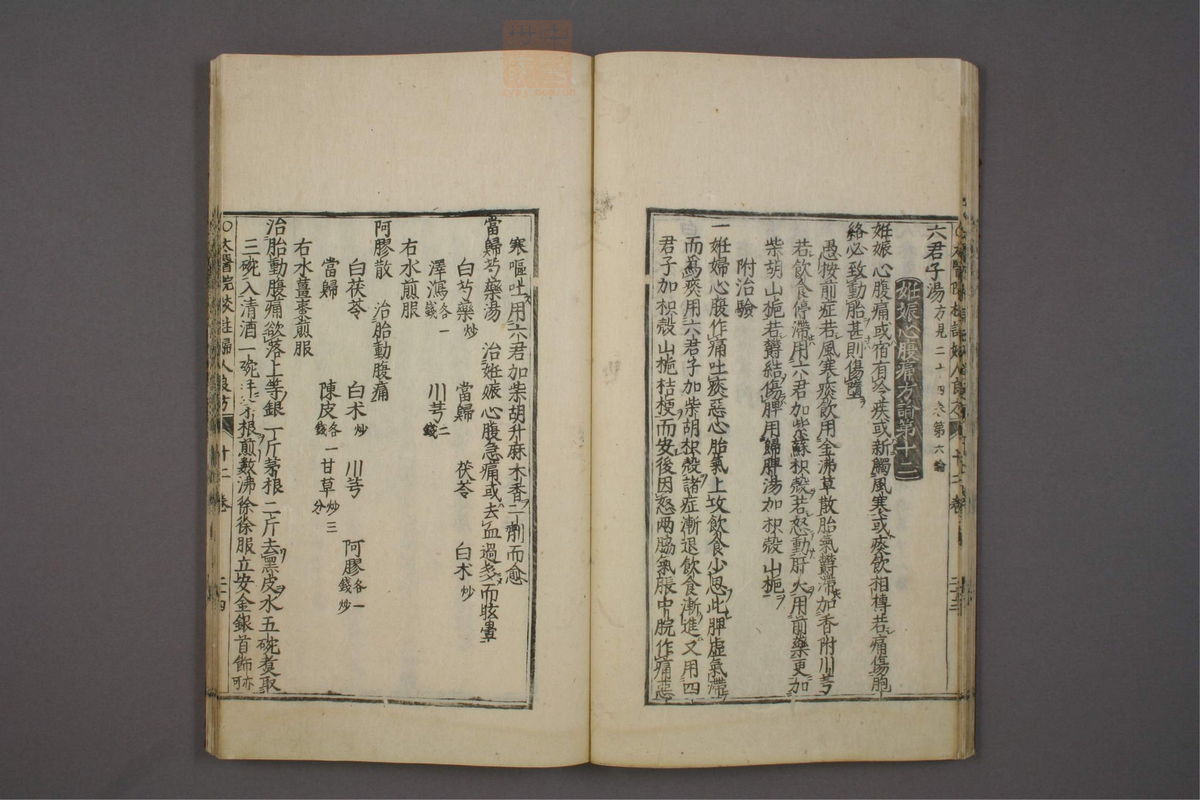 六君子湯 方見二十四卷第六論
妊娠心腹痛方論第十二
妊娠心腹痛或宿有冷疾或新觸風寒或痰飲相搏若痛傷胞
絡必致動胎甚則傷墮
愚按前症若風寒痰飲用金沸草散胎氣欝滯加香附川芎
若飲食停滯用六君加紫蘇枳殼若怒動肝火用前藥更加
柴胡山梔若欝結傷脾用歸脾湯加枳殼山梔
附治驗
一妊婦心腹作痛吐痰惡心胎氣上攻飲食少思此脾虛氣滯
而爲痰用六君子加柴胡枳殼諸症漸退飲食漸進又用四
君子加枳殼山梔桔梗而安後因怒兩脇氣脹中脘作痛恶
寒嘔吐用六君加柴胡升麻木香二劑而愈
當歸芍藥湯 治妊娠心腹急痛或去血過多而眩暈
白芍藥炒 當歸 茯苓 白术炒
澤瀉各一錢 川芎二錢
右水煎服
阿膠散 治胎動腹痛
白茯苓 白术炒 川芎 阿膠各一錢炒
當歸 陳皮各一錢 甘草炒三分
右水薑棗煎服
治胎動腹痛欲落上等銀一斤茅根二斤去黑皮水五碗煑取
三碗入清酒一碗 茅根煎數沸徐徐服立安金銀首飾亦可
〇太醫院校註婦人良方 十二卷 二四